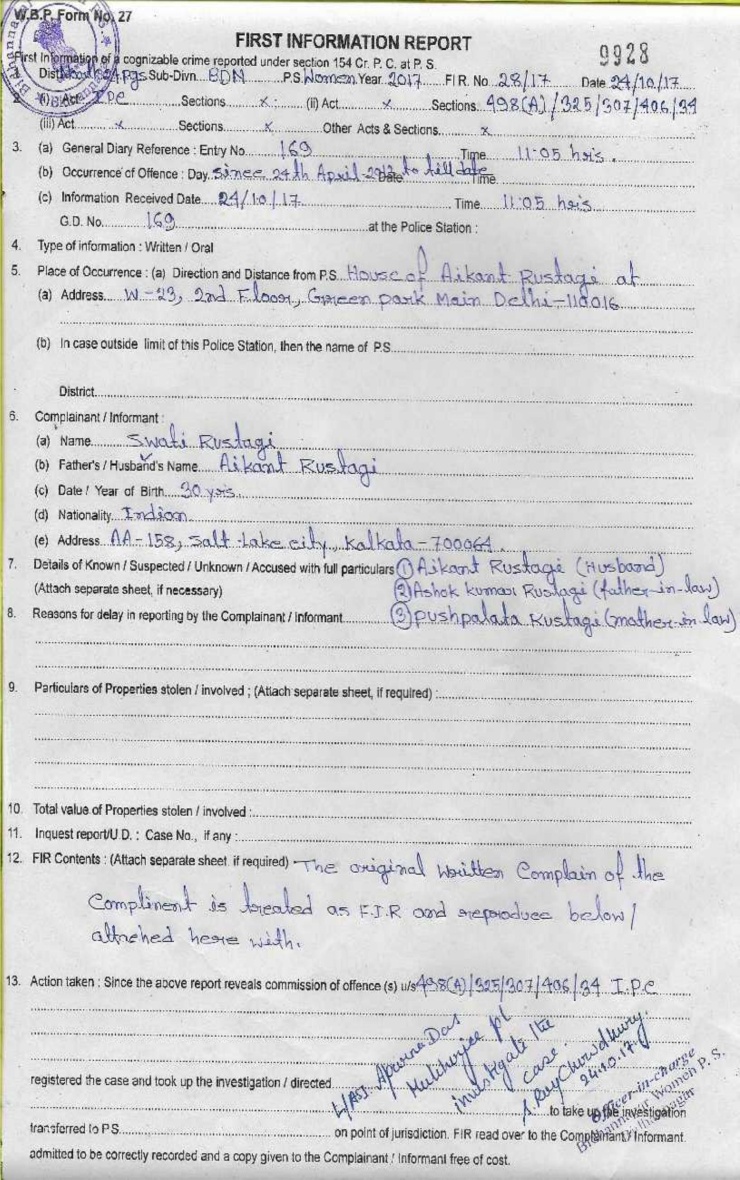 W.B.P. Form No. 27
FIRST INFORMATION REPORT
9928
First Information of a cognizable crime reported under section 154 Cr. P. C. at P. S.
Dist. North 24 Pgs Sub-Divn. BDN P.S. Women Year 2017 F I R. No. 28/17 Date 24/10/17
(i) Act IPC Sections x (ii) Act x Sections. 498(A)/325/307/406/34
(iii) Act x Sections. x Other Acts & Sections. x
3. (a) General Diary Reference : Entry No. 169 Time. 11:05 hrs.
(b) Occurrence of Offence : Day. Since 24th April- Date to till date Time
(c) Information Received Date. 24/10/17 Time. 11:05 hrs
G.D. No. 169 at the Police Station :
4. Type of information : Written / Oral
5. Place of Occurrence : (a) Direction and Distance from P.S. House of Aikant Rustagi at
(a) Address. W-23, 2nd Floor, Green park Main Delhi-110016
(b) In case outside limit of this Police Station, then the name of P.S.
District.
6. Complainant / Informant :
(a) Name. Swati Rustagi
(b) Father's / Husband's Name. Aikant Rustagi
(c) Date / Year of Birth. 30 yrs.
(d) Nationality. Indian
(e) Address. AA-158, Salt-Lake city, Kalkata-700064.
7. Details of Known / Suspected / Unknown / Accused with full particulars (1) Aikant Rustagi (Husband)
(Attach separate sheet, if necessary) (2) Ashok kumar Rustagi (father-in-law)
8. Reasons for delay in reporting by the Complainant / Informant. (3) pushpalata Rustagi (mother-in law)
9. Particulars of Properties stolen / involved ; (Attach separate sheet, if required) :
10. Total value of Properties stolen / involved :
11. Inquest report/U D. : Case No., if any :
12. FIR Contents : (Attach separate sheet, if required) The original written Complain of the
Complinent is treated as F.I.R and reproduce below/
attached here with.
13. Action taken : Since the above report reveals commission of offence (s) u/s 498(A)/325/307/406/34 I.P.C
L/ASI. Apurna Das
Mukherjee pl
investigate the
case.
A. Roy Chowdhury.
24.10.17
registered the case and took up the investigation / directed
Officer-in-charge
Bidhannagar Women P. S.
Bidhannagar
to take up the investigation
transferred to P.S. on point of jurisdiction. FIR read over to the Complainant / Informant.
admitted to be correctly recorded and a copy given to the Complainant / Informant free of cost.